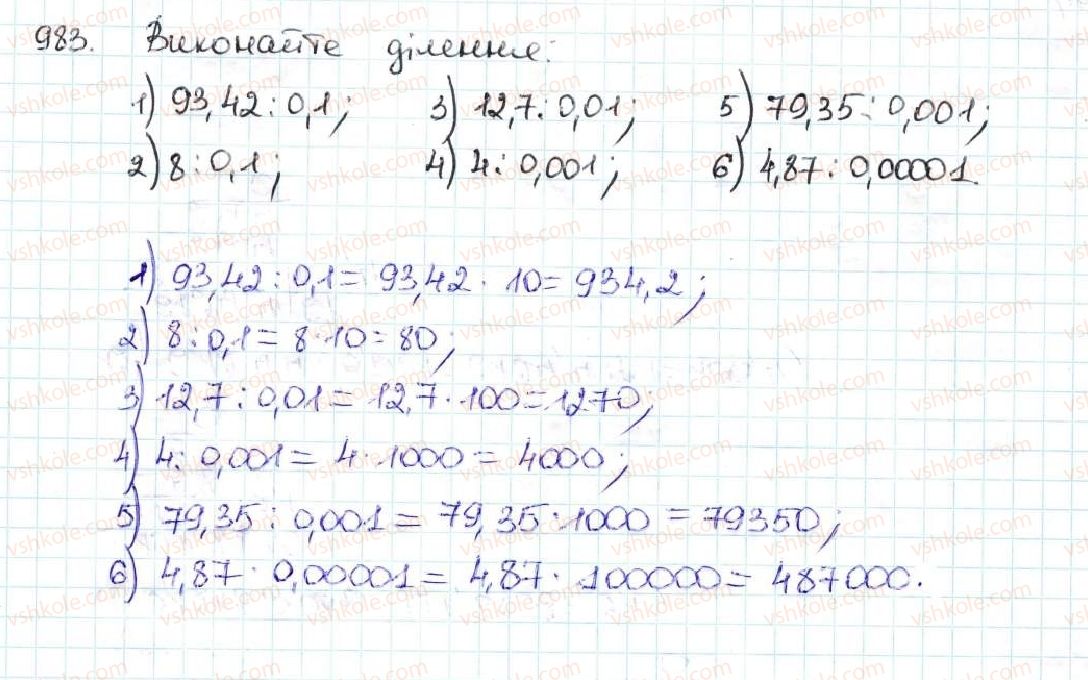 983. Виконайте ділення:
1) 93,42 : 0,1; 3) 12,7 : 0,01; 5) 79,35 : 0,001;
2) 8 : 0,1; 4) 4 : 0,001; 6) 4,87 : 0,00001.
1) 93,42 : 0,1 = 93,42 · 10 = 934,2;
2) 8 : 0,1 = 8 · 10 = 80;
3) 12,7 : 0,01 = 12,7 · 100 = 1270;
4) 4 : 0,001 = 4 · 1000 = 4000;
5) 79,35 : 0,001 = 79,35 · 1000 = 79350;
6) 4,87 · 0,00001 = 4,87 · 100000 = 487000.
vshkole.com